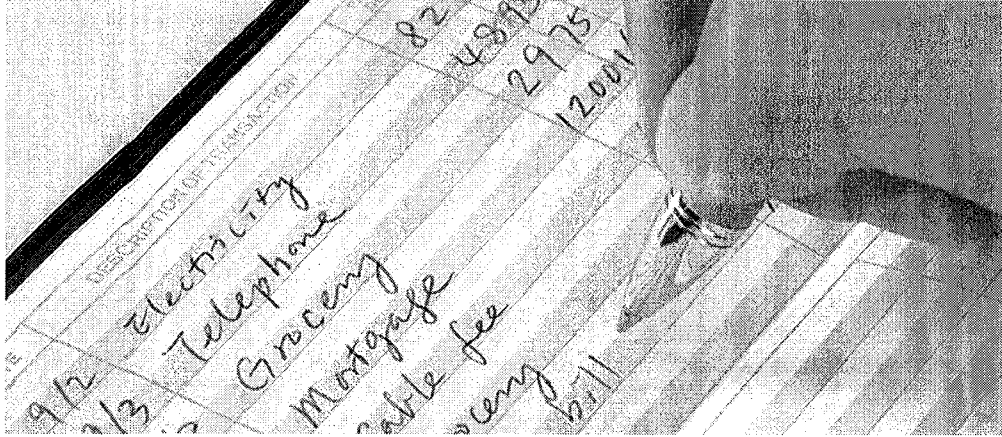 DESCRIPTION OF TRANSACTION
9/2 Electricity 82
9/3 Telephone 48.95
Grocery 29 75
Mortgage 1200
Cable fee
ocery
bill